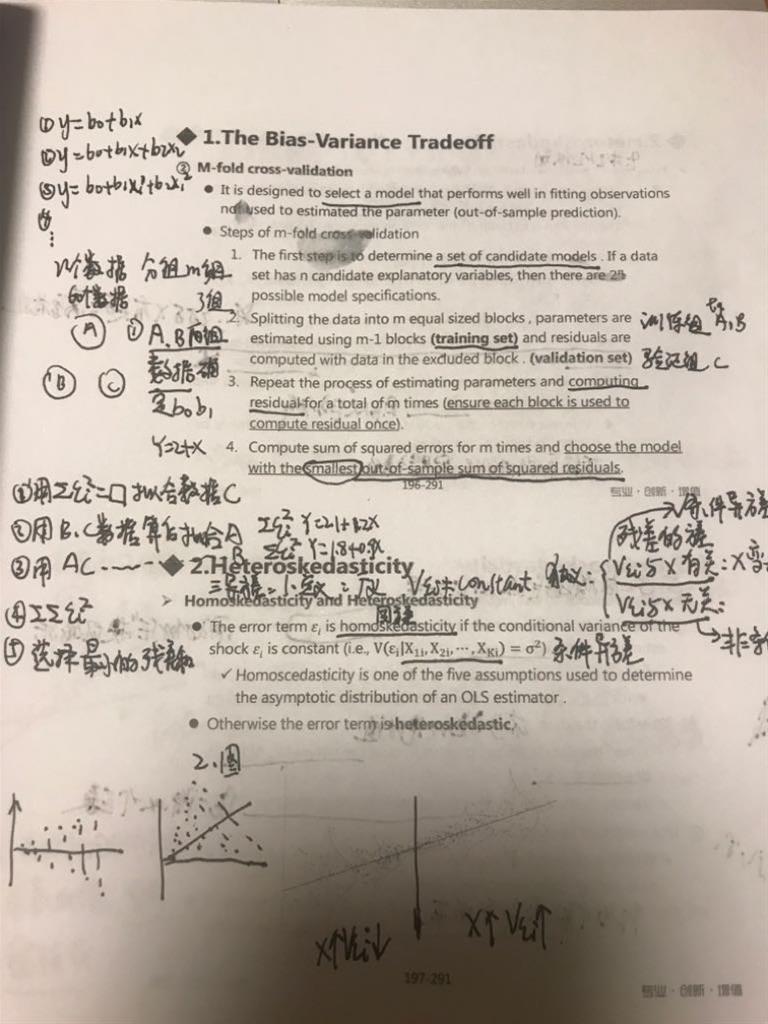 ① y=b0+b1x
② y=b0+b1x+b2x2
◆ 1.The Bias-Variance Tradeoff
② M-fold cross-validation
● It is designed to select a model that performs well in fitting observations
not used to estimated the parameter (out-of-sample prediction).
● Steps of m-fold cross-validation
1. The first step is to determine a set of candidate models . If a data
set has n candidate explanatory variables, then there are 2ⁿ
possible model specifications.
n个数据 分组 m组
60个数据 3组
Ⓐ ① A.B两组
数据确
定b0 b1
Ⓑ Ⓒ
Y=2+x
2. Splitting the data into m equal sized blocks , parameters are
estimated using m-1 blocks (training set) and residuals are
computed with data in the excluded block . (validation set)
训练组 A,B
验证组 C
3. Repeat the process of estimating parameters and computing
residual for a total of m times (ensure each block is used to
compute residual once).
4. Compute sum of squared errors for m times and choose the model
with the smallest out-of-sample sum of squared residuals.
196-291
专业 · 创新 · 增值
①用Σεi²=口 拟合数据C
②用B.C数据算后拟合A Σεi² Y=2.1+1.2x
③用 AC ------ B Σεi² Y=1.8+0.9x
④ΣΣεi²
⑤选择最小的残差和
◆ 2.Heteroskedasticity
1.定义:
Vεi≠constant
残差的方差
Vεi与X有关:
Vεi与X无关:
条件异方差
➢ Homoskedasticity and Heteroskedasticity
同方差
● The error term εi is homoskedasticity if the conditional variance of the
shock εi is constant (i.e., V(εi|X1i, X2i, ⋯, XKi) = σ²) 条件异方差
✓ Homoscedasticity is one of the five assumptions used to determine
the asymptotic distribution of an OLS estimator .
● Otherwise the error term is heteroskedastic.
2.图
X↑Vεi↓
X↑ Vεi↑
197-291
专业 · 创新 · 增值